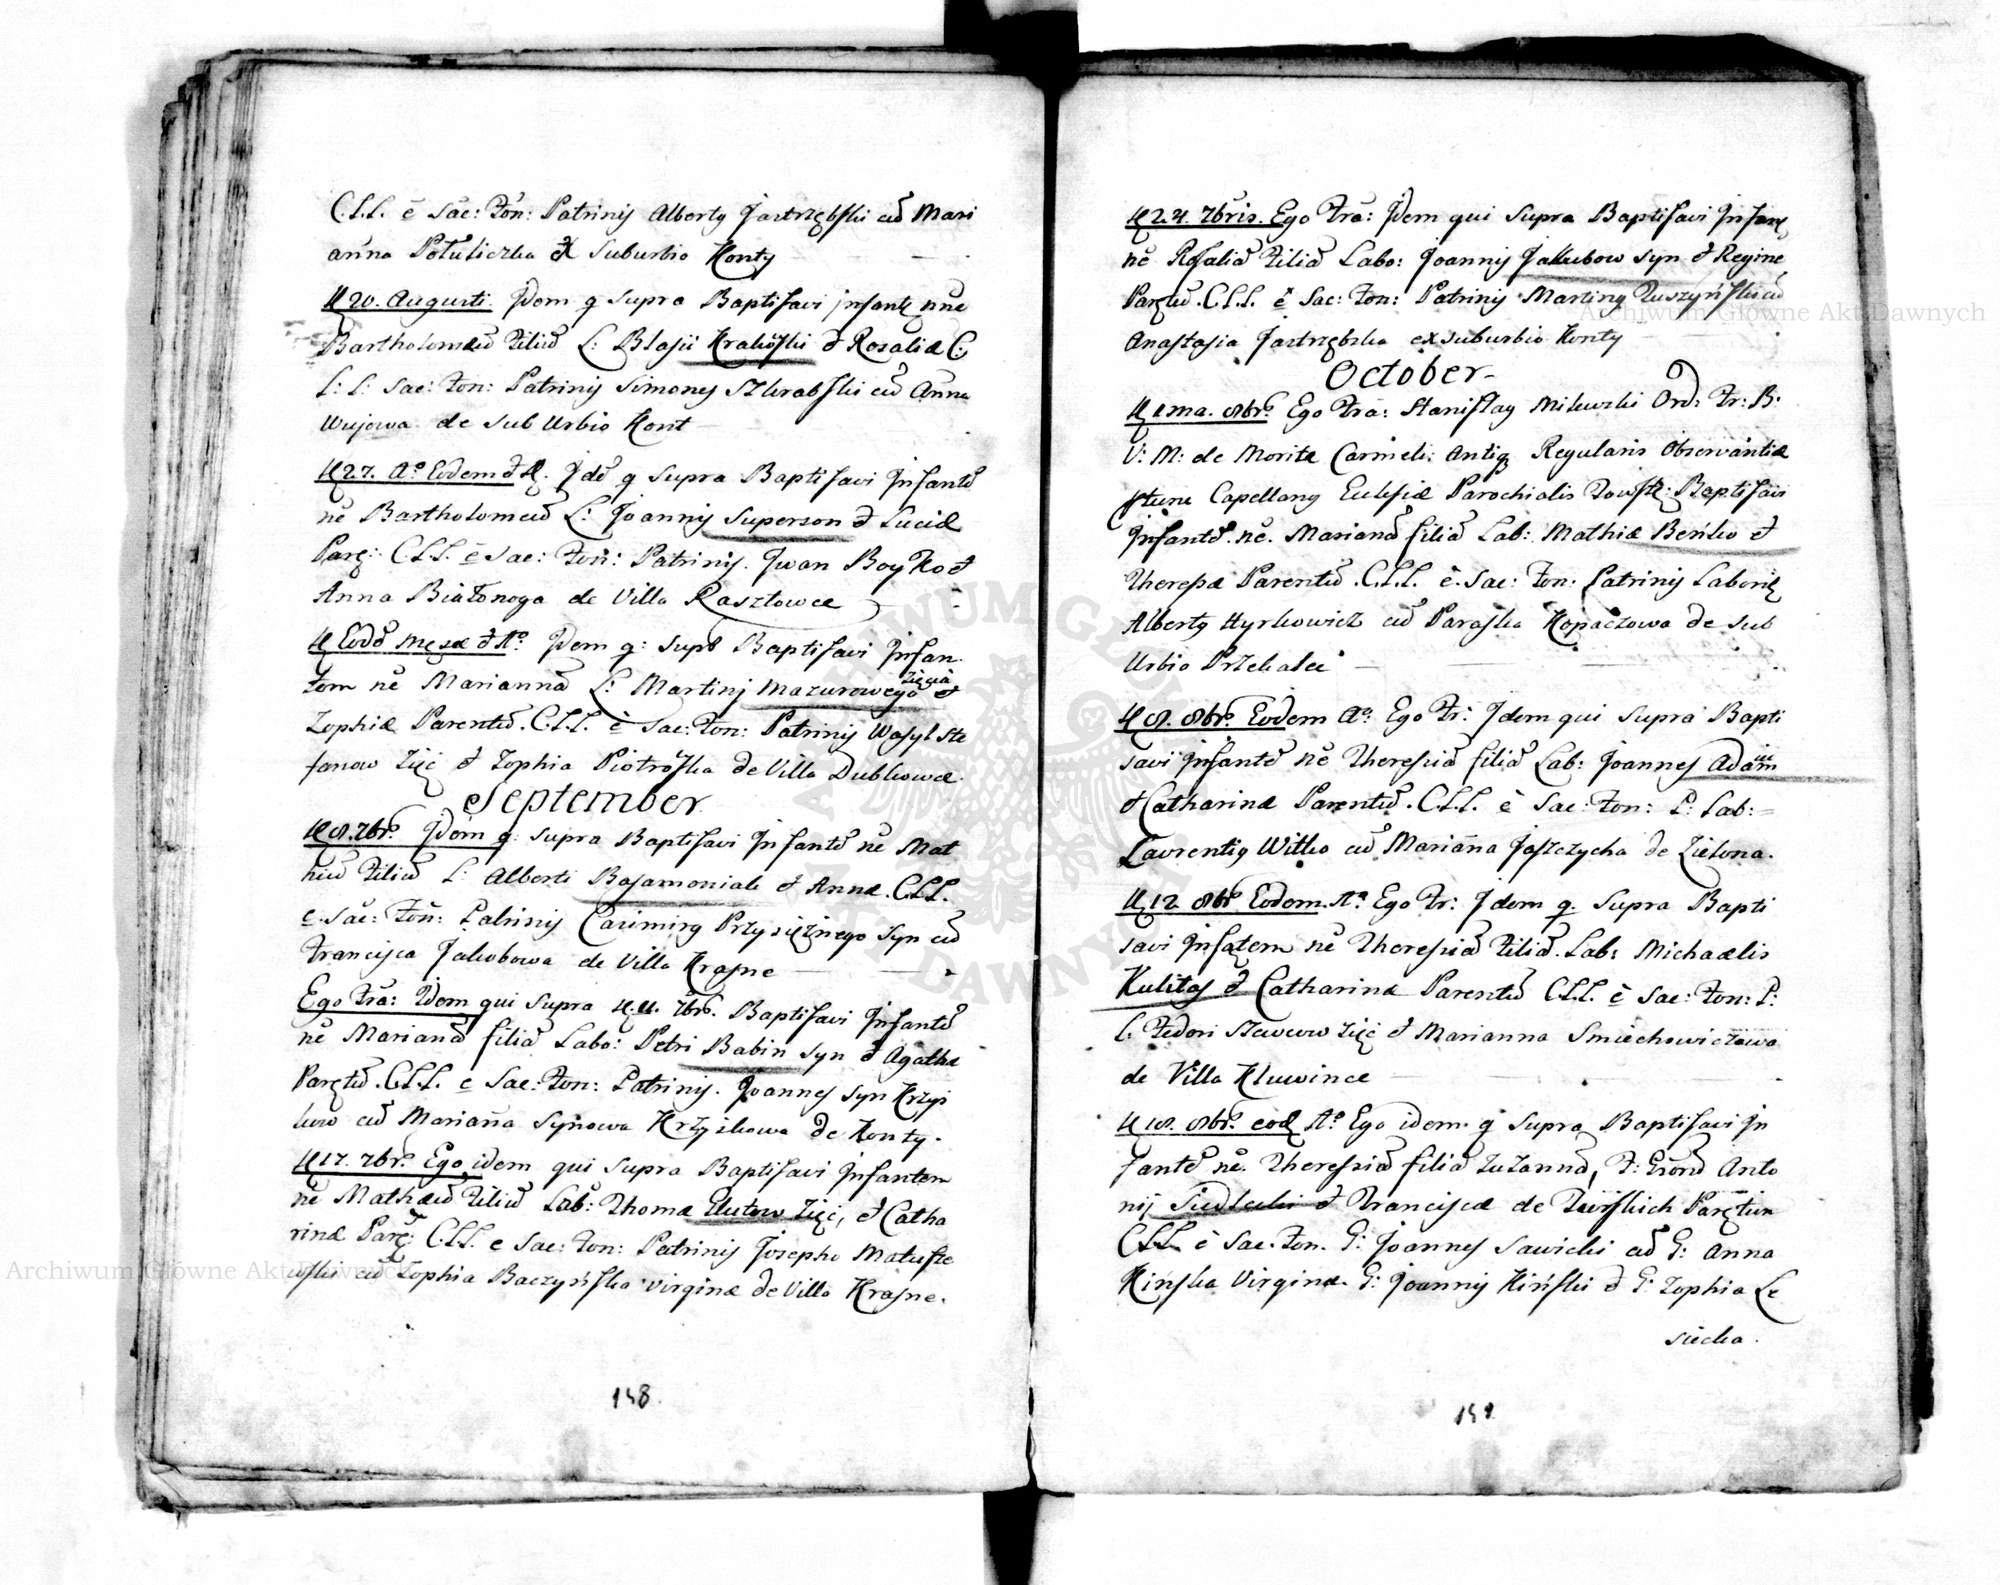 C.L.L. ē Sāc: Fōn: Patrinis Alberty Jastrzębski cū Mari
anna Potuliczka ex Suburbio Konty
D 20. Augusti. Idem q supra Baptisavi infantē nne
Bartholomeū Filiū L: Blasii Krakoski & Rosaliæ C:
L: L: Sac: Fon: Patrinis Simones Szkrabski cū Anna
Wujowa de Sub Urbio Kont
D 27. Aº Eodem & M. Idē q Supra Baptisavi Infantē
nē Bartholomeū L: Joannis Superson & Luciæ
Parę: C.L.L. ē Sac: Fon: Patrinis. Iwan Boyko &
Anna Białonoga de Villa Rasztowce
D Eodē Męse & Aº. Idem q: supr Baptisavi Infan
tem nē Mariannā L: Martini Mazurowego Zięcia &
Zophiæ Parentū. C.L.L. ē Sac: Fon: Patrinis Wasyl Ste
fanow Zięć & Zophia Piotroska de Villa Dubkowce
September
D 8. 7brº Idem q: supra Baptisavi Infantē nē Mat
heū Filiū L: Alberti Basamoniak & Annæ. C.L.L.
ē. Sac: Fon: Patrinis Casimirg Przysiężnego Syn cū
Francisca Jakobowa de Villa Krasne
Ego Frā: Idem qui Supra D. 11. 7brº. Baptisavi Infantē
nē Marianā filiā Labo: Petri Babin Syn & Agathæ
Parętū. C.L.L. ē Sac: Fon: Patrinis. Joannes Syn Krzyś
kow cū Mariana Synowa Krzyskowa de Konty.
D 17. 7brº Ego idem qui supra Baptisavi Infantem
nē Mathæū Filiū Lab: Thomæ Elutow Zięć, & Catha
rinæ Parę: C.L.L. e Sac: Fon: Patrinis Josepho Matusze
wski cū Zophia Baczyńska virginæ de Villa Krasne.
148.
D 24. 7bris. Ego Frā: Idem qui Supra Baptisavi Infant
nē Rosaliā Filiā Labo: Joannis Jakubow Syn & Reginæ
Parętū. C.L.L. ē Sac: Fon: Patrinis Marting Ruszyński cū
Anastasia Jastrzębska ex suburbio Konty
October
D 1ma. 8brº Ego Frā: Stanislag Milewski Ord: Fr: B:
V: M: de Monte Carmeli: Antiq Regularis Observantiæ
Capellang Eclesiæ Parochialis Baptisavi
Infantē. nē. Marianā filiā Lab: Mathiæ Beńko &
Theresæ Parentū. C.L.L. ē. Sac: Fon: Patrinis Laborię
Alberty Hyrkowicz cū Paraska Kopaczowa de Sub
Urbio Przekalec
D 8. 8brº Eodem Aº. Ego Fr: Idem qui Supra Bapti
savi Infantē nē Theresiā filiā Lab: Joannes Adam
& Catharinæ Parentū. C.L.L. ē Sac: Fon: P: Lab:
Laurentig Witko cū Mariana Jaszczycha de Zielona.
D 12. 8brº Eodem. Aº. Ego Fr: Idem q. Supra Bapti
savi Infatem nē Theresiā Filiā. Lab: Michaelis
Kulitas & Catharinæ Parentū C.L.L. ē Sac: Fon: P:
L. Fedori Szewcow Zięć & Marianna Smiechowiczowa
de Villa Kluwince
D 18. 8brº eod Aº Ego idem. q Supra Baptisavi In
fantē nē. Theresiā filiā Zuzannā, Anto
nij Siedlecki & Franciscæ de Parętum
C.L.L. ē Sac. Fon. G: Joannes Sawicki cū G: Anna
Kińska Virginæ. G: Joannis Kiński & G: Zophia Le
siecka.
149
Archiwum Główne Akt Dawnych
Archiwum Główne Akt Dawnych